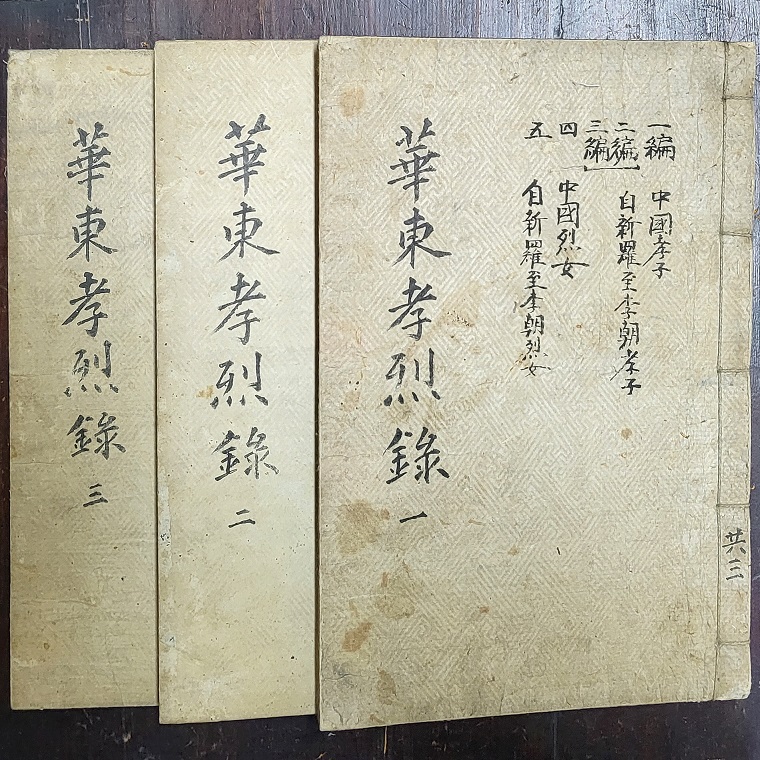 共三
一編 中國孝子
二編
三編 自新羅至李朝孝子
四 中國烈女
五 自新羅至李朝烈女
華東孝烈錄 一
華東孝烈錄 二
華東孝烈錄 三